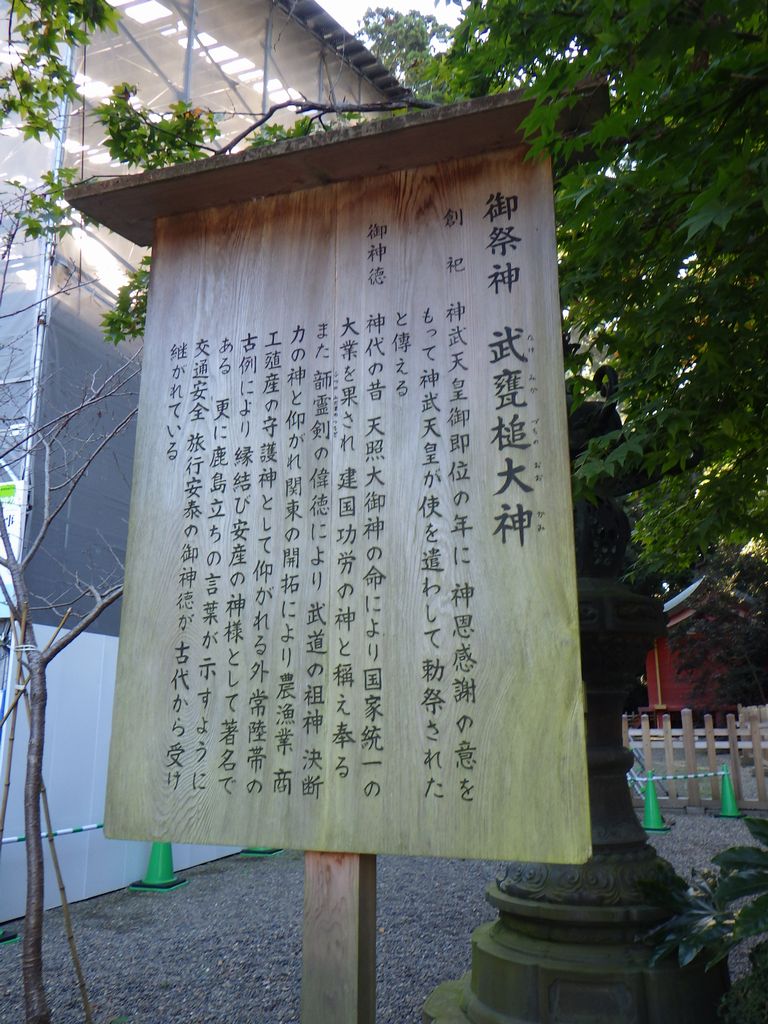 御祭神 武甕槌大神
たけ みか づちの おお かみ
創祀 神武天皇御即位の年に 神恩感謝の意を
もって神武天皇が使を遣わして勅祭された
と傳える
御神徳 神代の昔 天照大御神の命により国家統一の
大業を果され 建国功労の神と稱え奉る
また 韴霊剣の偉徳により 武道の祖神 決断
力の神と仰がれ関東の開拓により農漁業 商
工殖産の守護神として仰がれる外常陸帯の
古例により 縁結び安産の神様として著名で
ある 更に鹿島立ちの言葉が示すように
交通安全 旅行安泰の御神徳が 古代から受け
継がれている